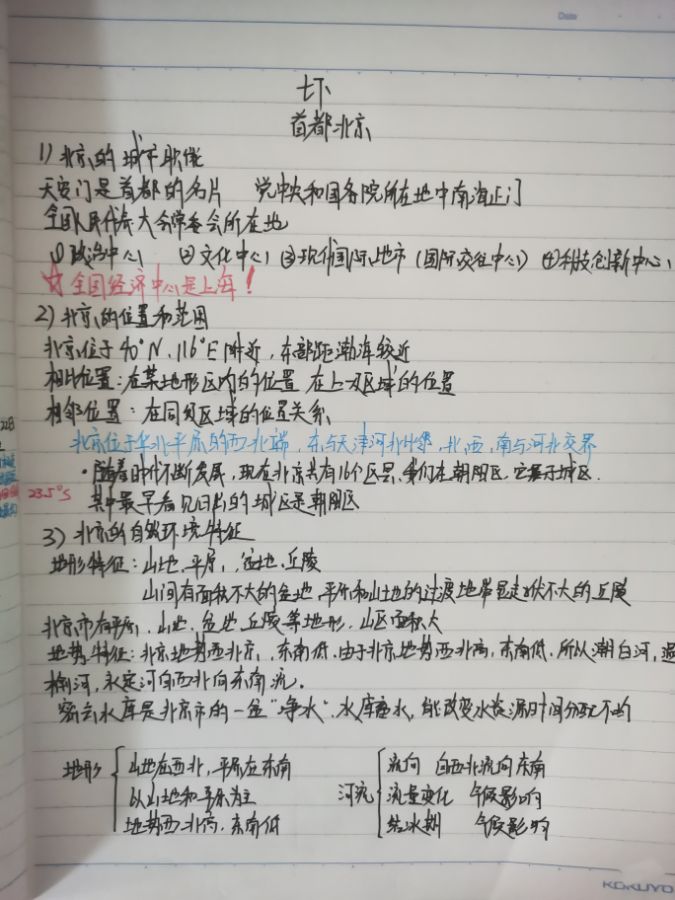 Date
七下
首都北京
1) 北京的城市职能
天安门是首都的名片 党中央和国务院所在地中南海正门
全国人民代表大会常委会所在地
①政治中心 ②文化中心 ③现代国际城市(国际交往中心) ④科技创新中心
☆全国经济中心是上海!
2) 北京的位置和范围
北京位于40°N、116°E附近,东部距渤海较近
相对位置:在某地形区内的位置 在上级区域的位置
相邻位置:在同级区域的位置关系
北京位于华北平原的西北端,东与天津河北,北、西、南与河北交界
·随着时代不断发展,现在北京共有16个区县,我们在朝阳区,它属于城区.
23.5°S
其中最早看见日出的城区是朝阳区
3) 北京的自然环境特征
地形特征:山地、平原、盆地、丘陵
山间有面积不大的盆地,平原和山地的过渡地带是起伏不大的丘陵
北京市有平原、山地、盆地、丘陵等地形,山区面积大
地势特征:北京地势西北高,东南低.由于北京地势西北高,东南低,所以潮白河,温
榆河,永定河自西北向东南流.
密云水库是北京市的一盆"净水".水库蓄水,能改变水资源时间分配不均
地形 山地在西北,平原在东南 河流 流向 自西北流向东南
以山地和平原为主 流量变化 气候影响
地势西北高,东南低 结冰期 气候影响
KOKUYO